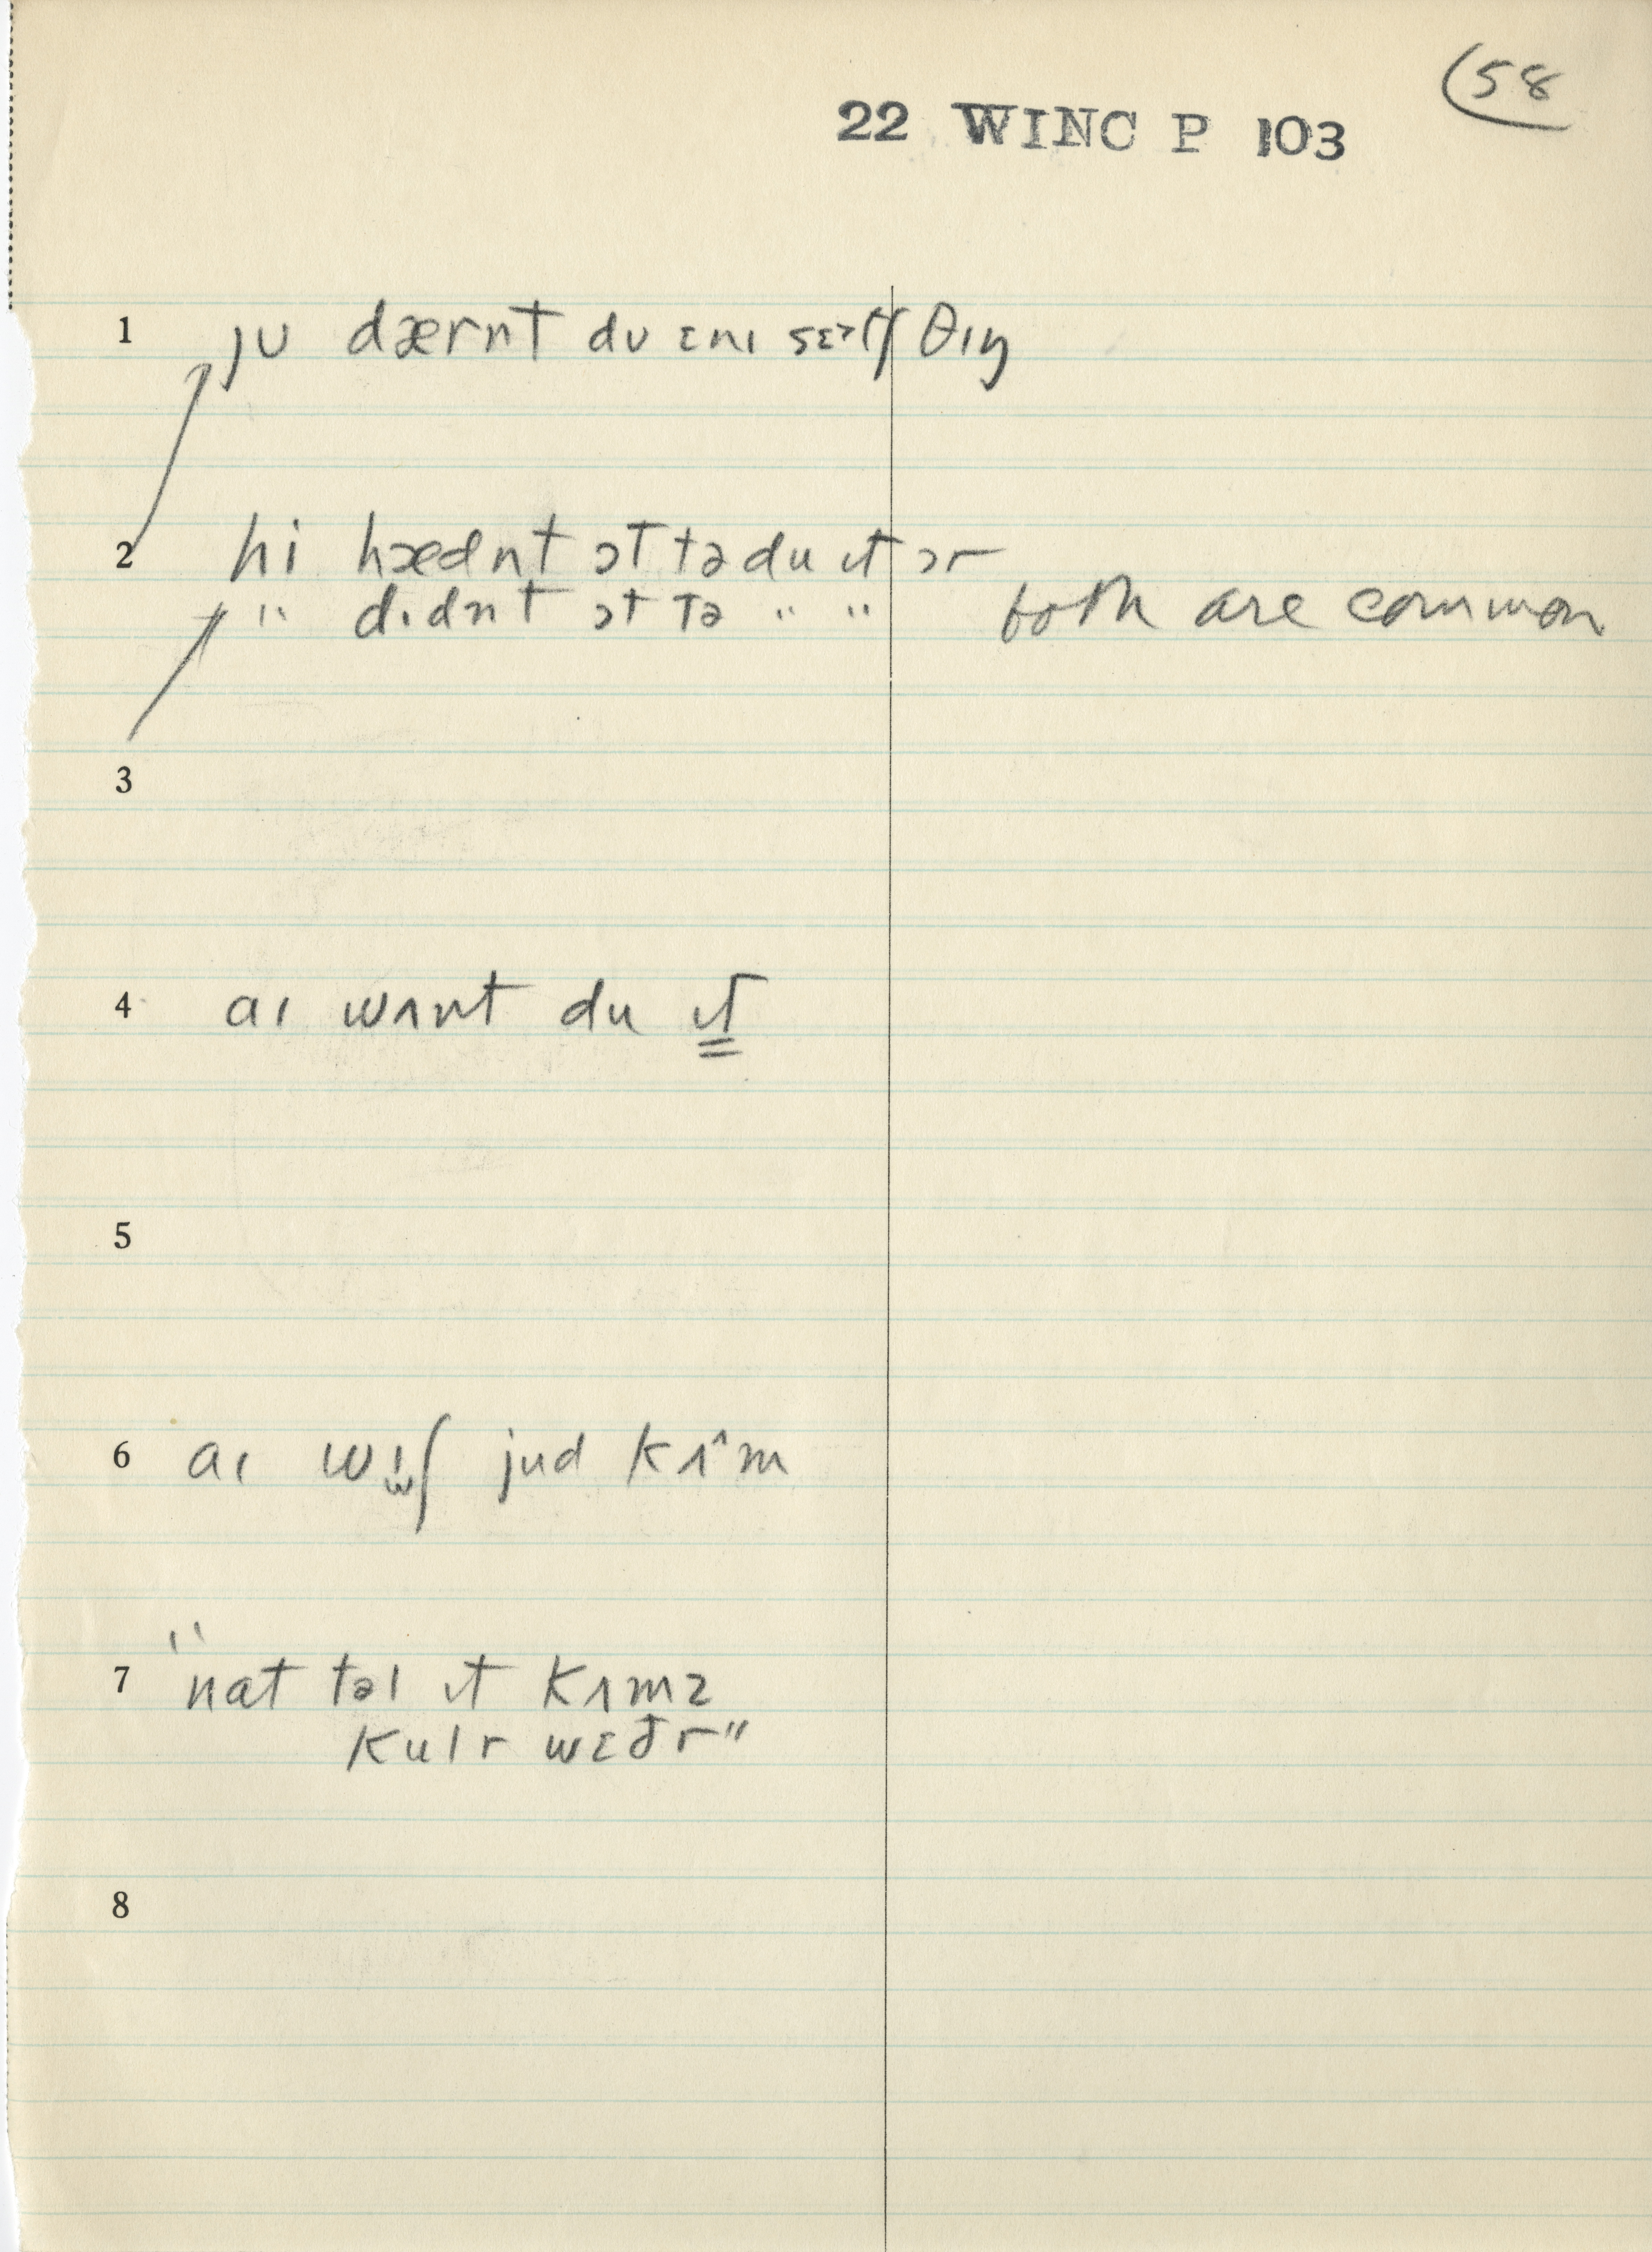 (58
22 WINC P 103
1 jʊ dærnt dʊ ɛnɪ θɪŋ
2 hi hædnt ɔt tə du ɪt ɔr
" dɪdnt ɔt tə " " both are common
3
4 aɪ wʌnt du ɪt
5
6 aɪ wɪʃ jud kʌ^m
7 "nat təl ɪt kʌmz
kulr wɛðr"
8